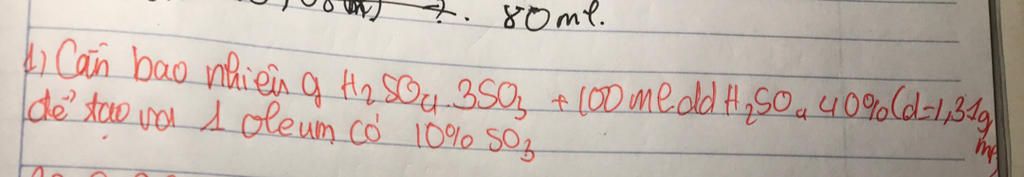 80ml.
1) Cần bao nhiêu g H2SO4.3SO3 + 100ml dd H2SO4 40% (d=1,31g
ml
để tạo ra 1 oleum có 10% SO3